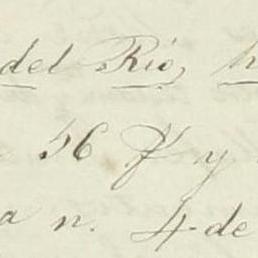 del Rio,
56 f y
a n. 4 de